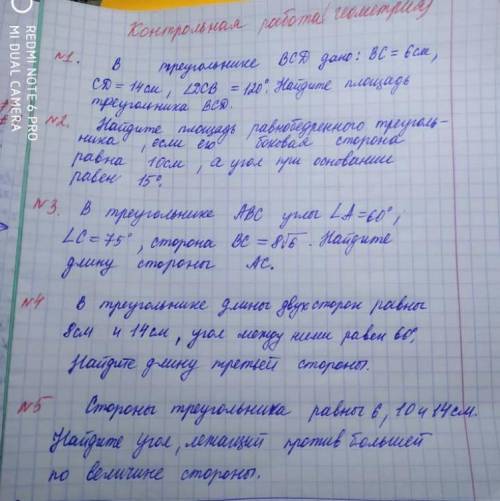 Контрольная работа (геометрия)
№1. В треугольнике BCD дано: BC = 6см,
CD = 14см, ∠DCB = 120°. Найдите площадь
треугольника BCD.
№2. Найдите площадь равнобедренного треуголь-
ника, если его боковая сторона
равна 10см, а угол при основании
равен 15°.
№3. В треугольнике ABC углы ∠A = 60°,
∠C = 75°, сторона BC = 8√6. Найдите
длину стороны AC.
№4 В треугольнике длины двух сторон равны
8см и 14см, угол между ними равен 60°,
Найдите длину третьей стороны.
№5 Стороны треугольника равны 6, 10 и 14см.
Найдите угол, лежащий против большей
по величине стороны.
REDMI NOTE 6 PRO
MI DUAL CAMERA